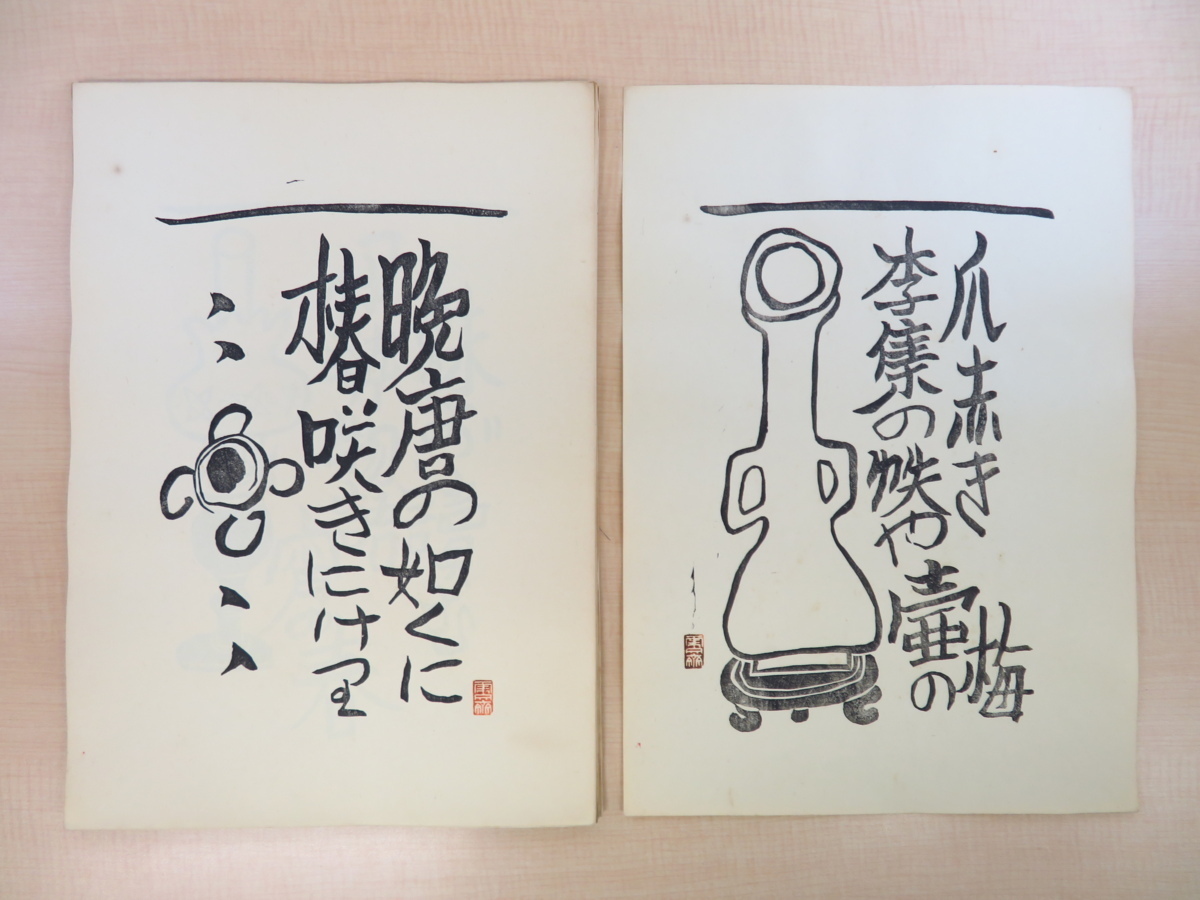 晩唐の如くに
椿咲きにけり
爪赤き
李集の帙や壷の
梅